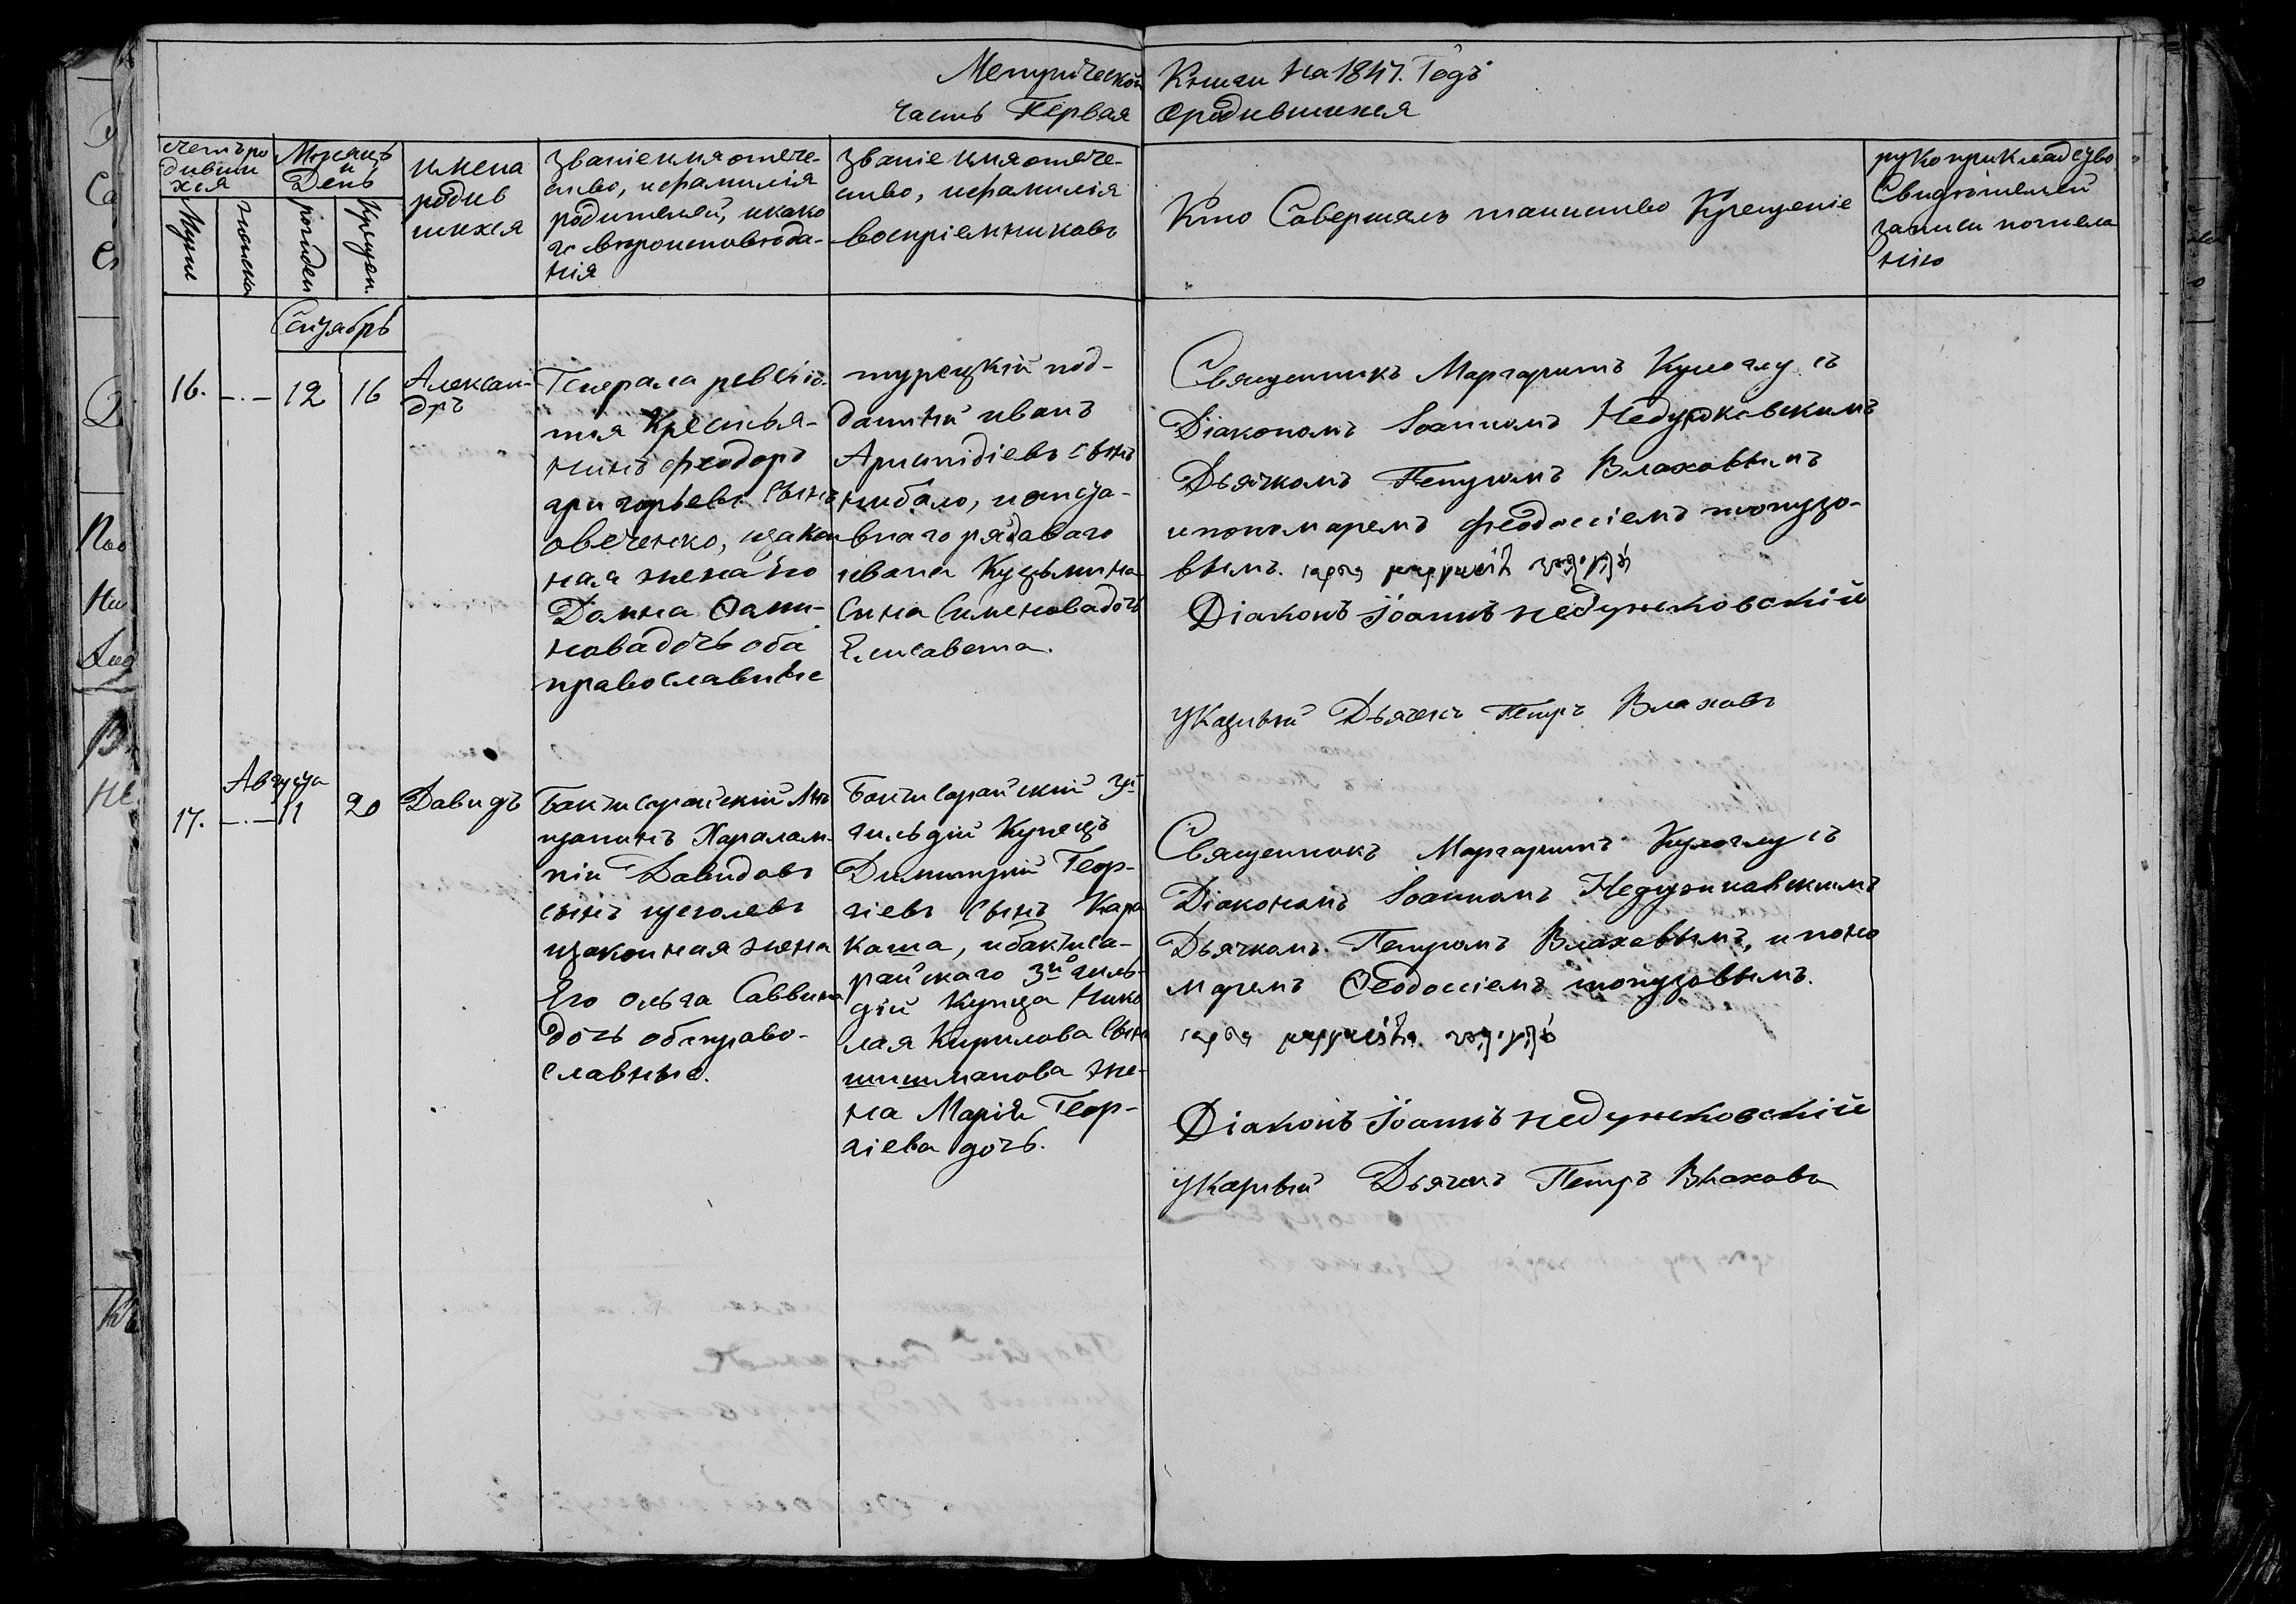 Метрической Книги На 1847. Годъ
часть Первая ородившихся
счетъ ро
дивши
хся
Мужие
женска
Месяцъ
и
День
рожден
Крещен.
имена
родив
шихся
Званіе имя отече-
ство, ифамилія
родителей, икако
го вероисповеда-
нія
Званіе имя отече-
ство, ифамилія
воспріемниковъ
Кто Совершалъ таинство Крещеніе
рукоприкладство
Свидетелей
записи пожела
нію
Сентябрь
16. -.- 12 16
Алексан-
дръ
Генерала ревеліо-
тия Крестья-
нинъ феодоръ
григорьевъ Сынъ
овеченко, изакон
ная жена его
Домна
нова дочь оба
православные
турецкій под-
данный иванъ
Аристідіевъ сынъ
нибало, иотста-
внаго рядоваго
ивана Кузьмина
Сына Симеонова дочь
Елисавета.
Священникъ Маргаритъ Кулоглу съ
Діакономъ Іоанномъ Недужковскимъ
Дьячкомъ Петромъ Влаховымъ
ипономаремъ феодосіемъ топузо-
вымъ.
Діаконъ Іоаннъ недужковскій
Указный Дьячекъ Петръ Влаховъ
Августа
17. -.- 11 20
Давидъ
Бакчисарайскій Ме
щанинъ Харалам-
пій Давидовъ
сынъ щеголевъ
изаконная жена
Его ольга Саввина
дочь оба право-
славные.
Бакчисарайскій 3й
гильдіи Купецъ
Димитрій Геор-
гіевъ Сынъ Кара
каша, ибакчиса-
райскаго 3й гиль-
діи Купца Нико
лая Кирилова Сына
шишманова же-
на Марія Геор-
гіева дочь.
Священникъ Маргаритъ Кулоглу съ
Діакономъ Іоанномъ Недужковскимъ
Дьячкомъ Петромъ Влаховымъ, ипоно
маремъ Ѳеодосіемъ топузовымъ.
Діаконъ Іоаннъ недужковскій
Указный Дьячекъ Петръ Влаховъ